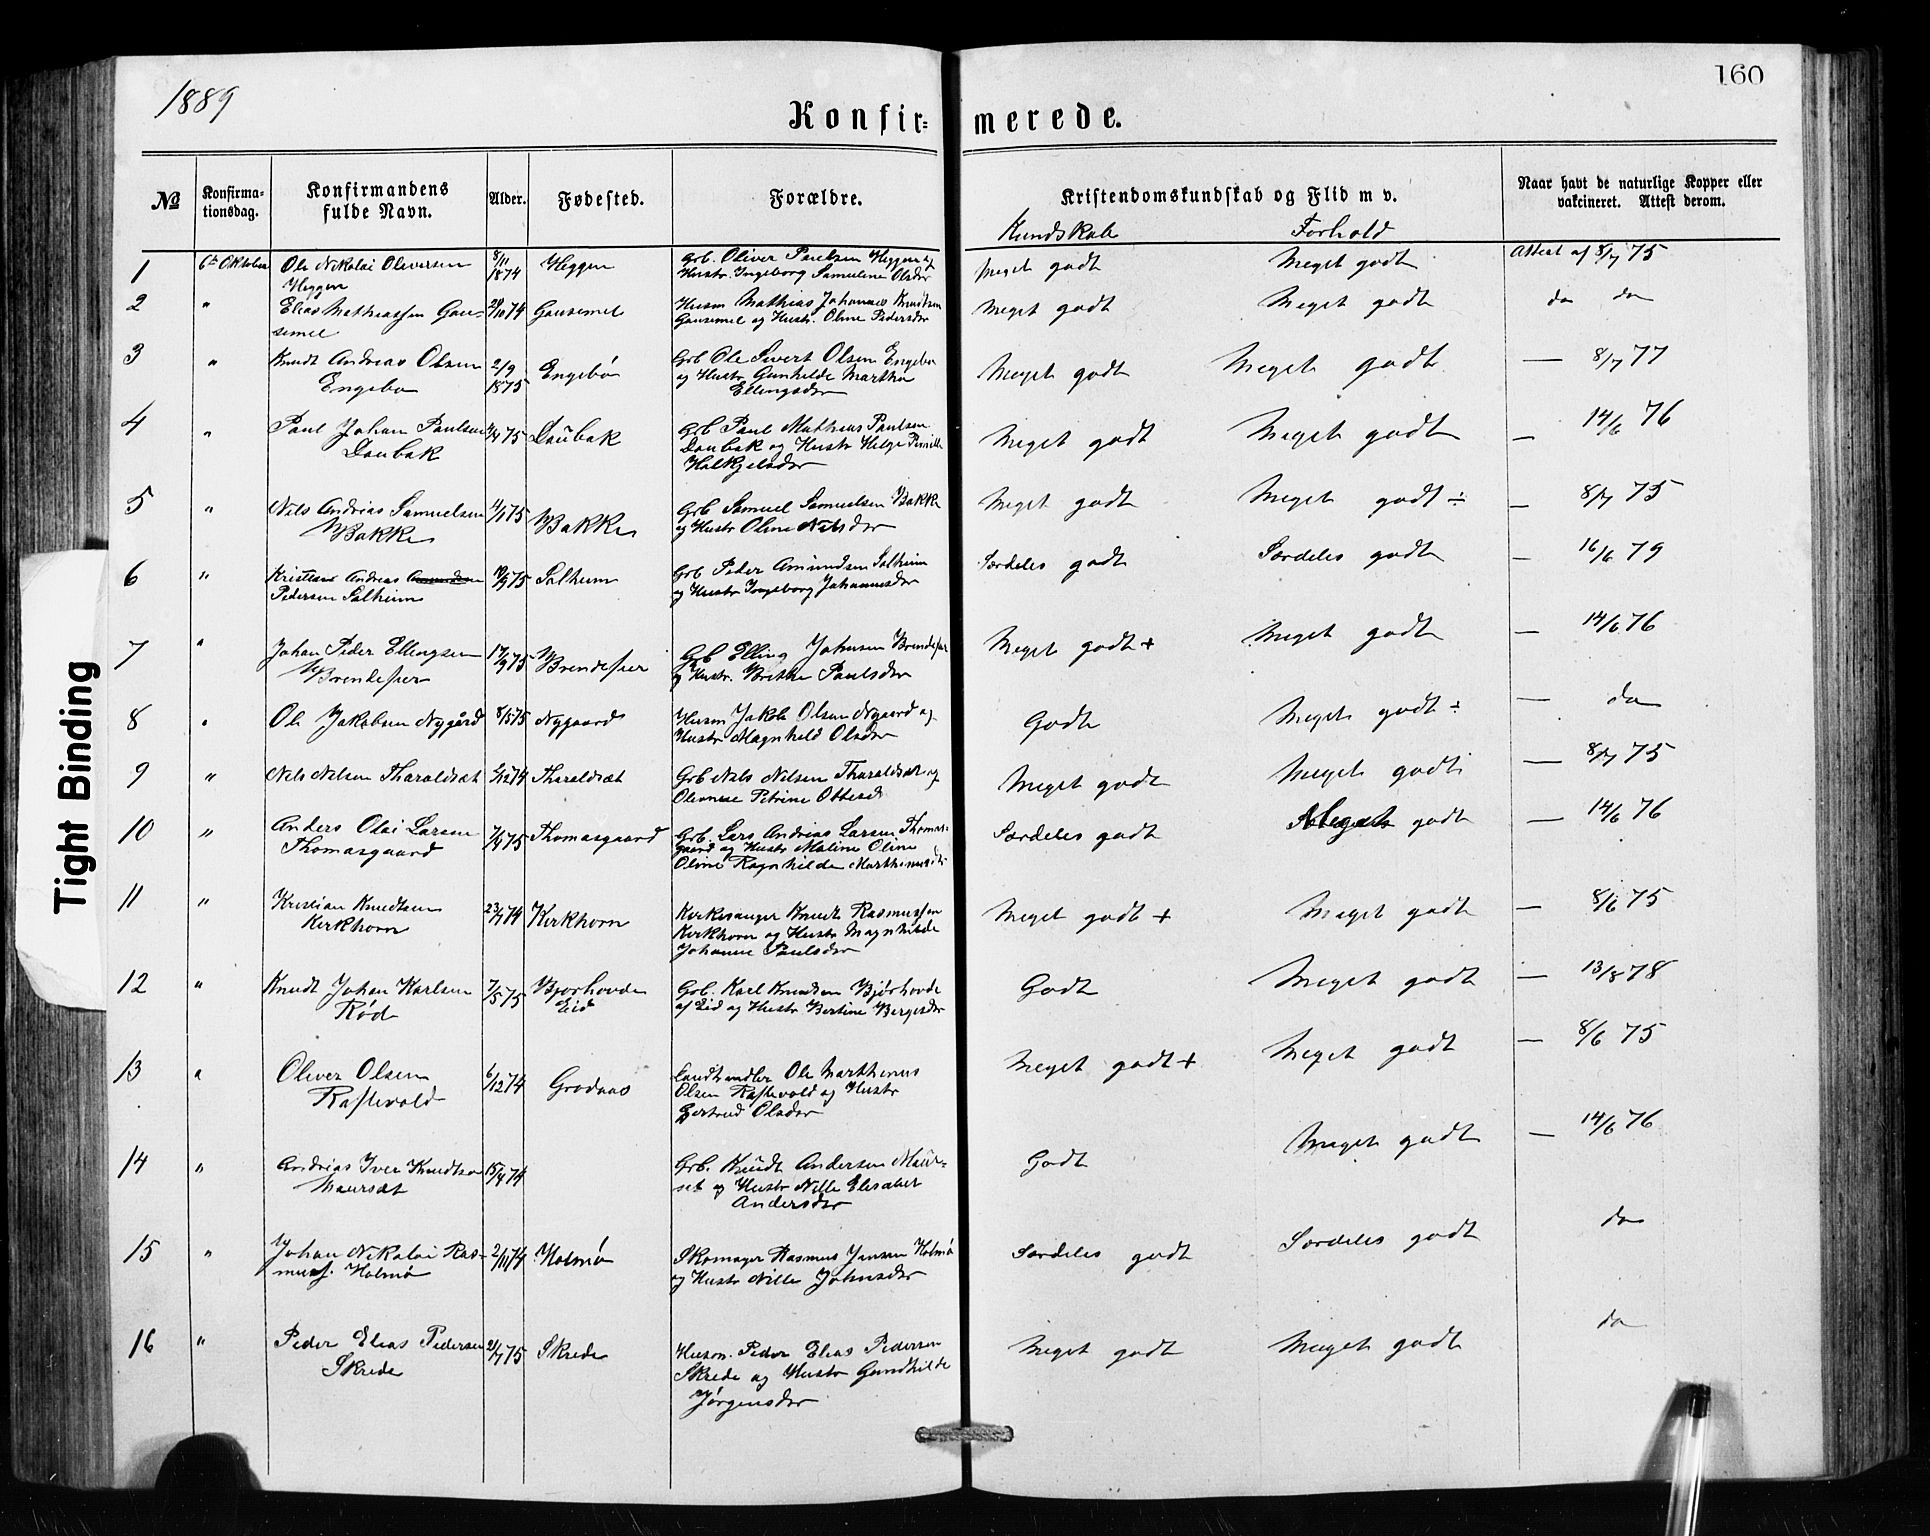 1889
160
Konfir= merede.
№ Konfirma-tionsdag. Konfirmandens fulde Navn. Alder. Fødested. Forældre. Kristendomskundskab og Flid m v. Naar havt de naturlige Kopper eller vakcineret. Attest derom.
Kundskab Forhold
1 6te Oktober Ole Nikolai Oliversen 8/11 1874 Heggen Grb. Oliver Paulsen Heggen og Meget godt Meget godt Attest af 8/7 75
Heggen Hustr. Ingeborg Samuline Olsdr
2 " Elias Mathiassen Gau- 28/10 74 Gausemel Husm Mathias Johannes Knudsen Meget godt Meget godt do do
semel Gausemel og Hustr. Oline Pedersdr
3 " Knudt Andreas Olsen 2/9 1875 Engebø Grb Ole Sivert Olsen Engebø Meget godt Meget godt — 8/7 77
Engebø og Hustr Gunhilde Martha
Ellingsdr
4 " Paul Johan Paulsen 4/4 75 Loubak Grb Paul Mathias Paulsen Meget godt Meget godt — 14/6 76
Loubak Loubak og Hustr Helge Pernille
Halkjelsdr
5 " Nils Andrias Samuelsen 11/1 75 Bakke Grb Samuel Samuelsen Bakke Meget godt Meget godt ÷ — 8/7 75
Bakke og Hustr Oline Nilsdr
6 " Kristians Andreas 75 Solheim Grb Peder Amundsen Solheim Særdeles godt Særdeles godt — 16/6 79
Pedersen Solheim og Hustr Ingeborg Johannesdr
7 " Johan Peder Ellingsen 17/9 75 Brendefur Grb Elling Johnsen Brendefur Meget godt + Meget godt — 14/6 76
Brendefur og Hustr. Brithe Paulsdr
8 " Ole Jakobsen Nygård 8/5 75 Nygaard Husm Jakob Olsen Nygaard og Godt Meget godt ÷ — do
Hustr Magnhild Olsdr
9 " Nils Nilsen Tharaldsæt /12 74 Tharaldsæt Grb Nils Nilsen Tharaldsæt og Meget godt Meget godt — 8/7 75
Petrine Ottesd
10 " Anders Olai Larsen 7/4 75 Thomasgaard Grb. Lars Andrias Larsen Thomas- Særdeles godt Meget godt — 14/6 76
Thomasgaard gaard og Hustr Maline Oline
Oline Ragnhilde
11 " Kristian Knudtsen 23/7 74 Kirkhorn Kirkesanger Knudt Rasmussen Meget godt + Meget godt — 8/6 75
Kirkhorn Kirkhorn og Hustr Magnhilde
Johanne Paulsdr
12 " Knudt Johan Karlsen 7/5 75 Bjorhovde Grb. Karl Knudtsen Bjørhovde Godt Meget godt — 13/8 78
Rød Eid af Eid og Hustr Bertine Bergesdr
13 " Oliver Olsen 6/12 74 Grodaas Landhandler Ole Marthinus Meget godt + Meget godt — 8/6 75
Raftevold Olsen Raftevold og Hustr
Gertrud Olsdr
14 " Andrias Iver Knudtsen 15/4 74 Grb. Knudt Andersen Maur- Godt Meget godt — 14/6 76
Maursæt set og Hustr Nille Elisabet
Andersdr
15 " Johan Nikolai Ras- 2/11 74 Holmø Skomager Rasmus Jensen Holmø Særdeles godt Særdeles godt do
muss. Holmø og Hustr Nille Johnsdr
16 " Peder Elias Pedersen 21/7 75 Skrede Husm. Peder Elias Pedersen Meget godt Meget godt do
Skrede Skrede og Hustr Gundhilde
Jørgensdr
Tight Binding